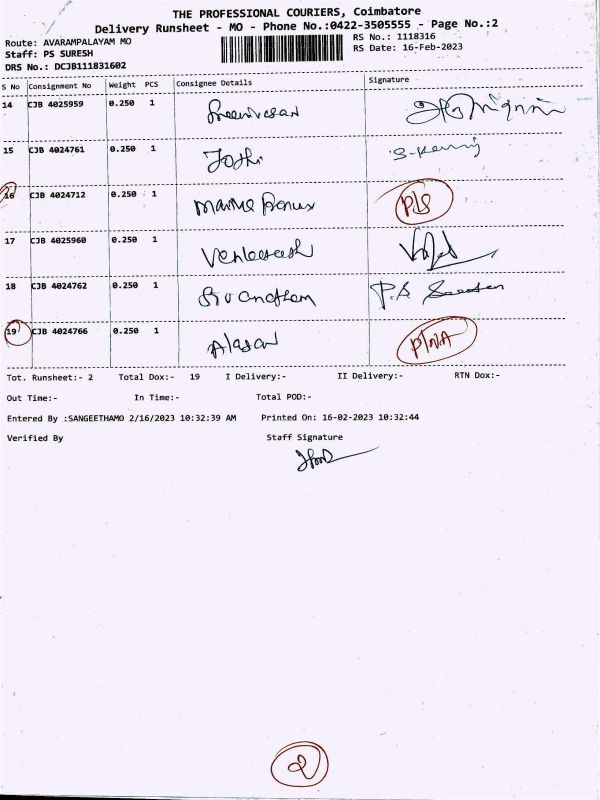 THE PROFESSIONAL COURIERS, Coimbatore
Delivery Runsheet - MO - Phone No.:0422-3505555 - Page No.:2
Route: AVARAMPALAYAM MO
RS No.: 1118316
Staff: PS SURESH
RS Date: 16-Feb-2023
DRS No.: DCJB111831602
S No Consignment No Weight PCS Consignee Details Signature
14 CJB 4025959 0.250 1 Sreenivasan
15 CJB 4024761 0.250 1 Joshi
16 CJB 4024712 0.250 1 P/S
17 CJB 4025960 0.250 1
18 CJB 4024762 0.250 1
19 CJB 4024766 0.250 1 P/NA
Tot. Runsheet:- 2 Total Dox:- 19 I Delivery:- II Delivery:- RTN Dox:-
Out Time:- In Time:- Total POD:-
Entered By :SANGEETHAMO 2/16/2023 10:32:39 AM Printed On: 16-02-2023 10:32:44
Verified By Staff Signature
2